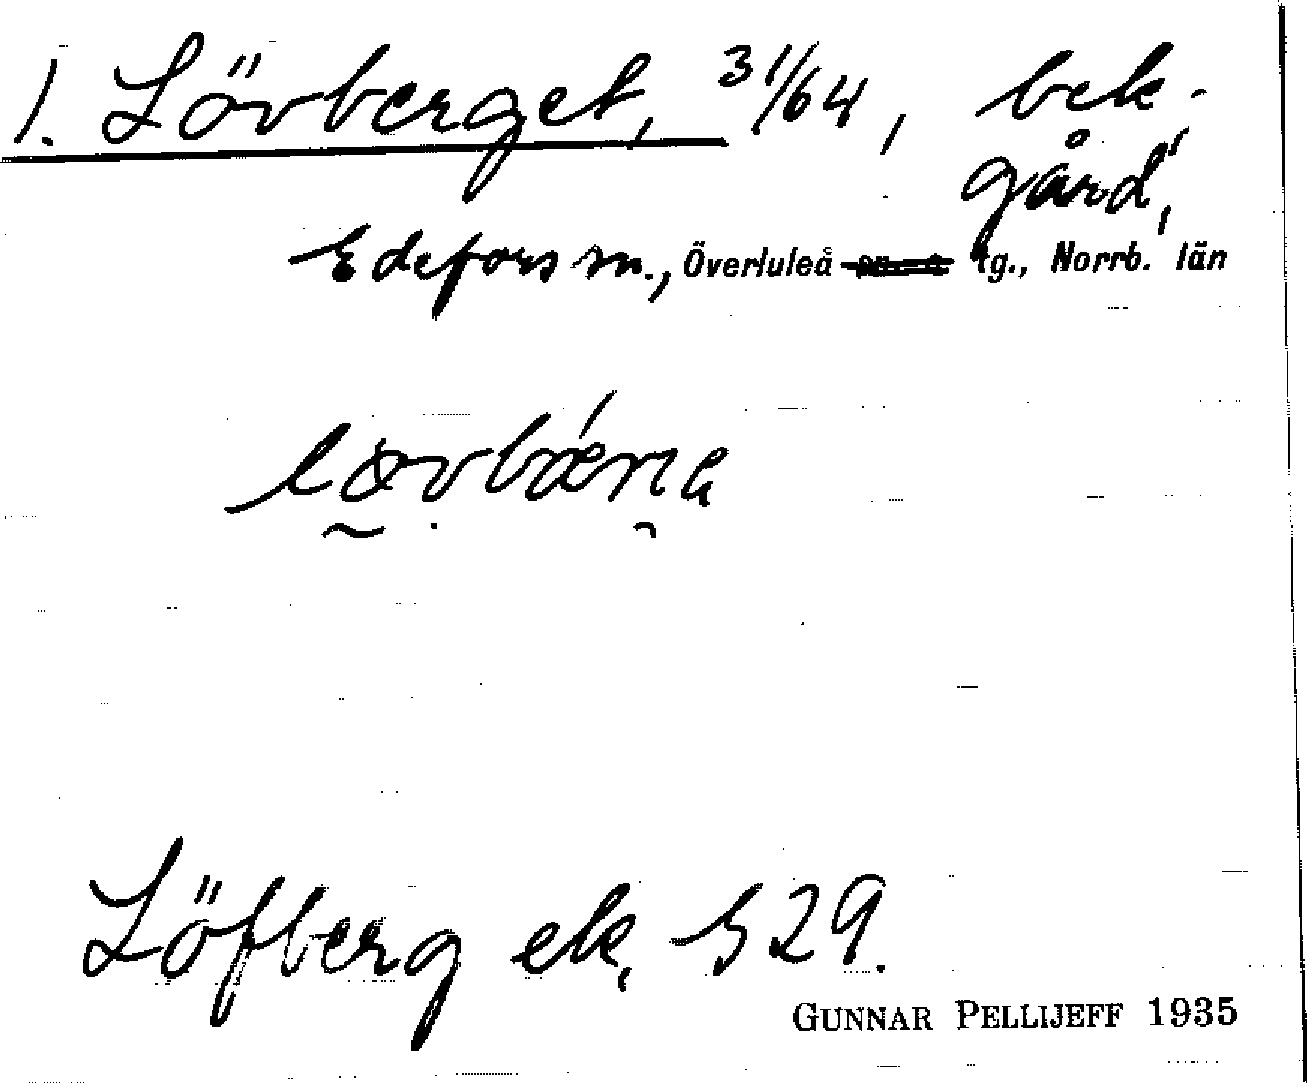 1. Lövberget, 31/64, bek.
gård,
Edefors sn., Överluleå tg., Norrb. län
Löfberg ek, 529.
GUNNAR PELLIJEFF 1935